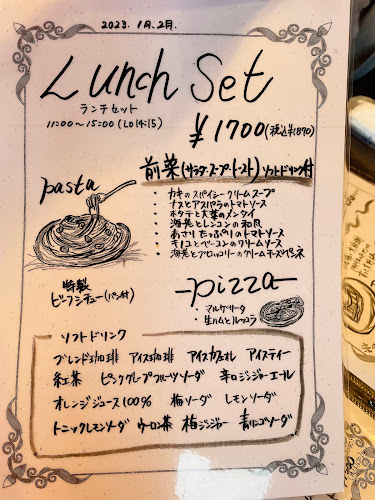 2023. 1月、2月.
Lunch Set
ランチセット
11:00〜15:00 (LO 14:15)
¥1700(税込¥1870)
前菜(サラダ・スープ・トースト) ソフトドリンク付
pasta
・カキのスパイシークリームスープ
・ナスとアスパラのトマトソース
・ホタテと大葉のメンタイ
・海老とレンコンの和風
・あさりたっぷりのトマトソース
・キノコとベーコンのクリームソース
・海老とブロッコリーのクリームチーズペンネ
特製
ビーフシチュー(パン付)
pizza
・マルゲリータ
・生ハムとルッコラ
ソフトドリンク
ブレンド珈琲 アイス珈琲 アイスカフェオレ アイスティー
紅茶 ピンクグレープフルーツソーダ 辛口ジンジャーエール
オレンジジュース100% 梅ソーダ レモンソーダ
トニックレモンソーダ ウーロン茶 梅ジンジャー 青りんごソーダ